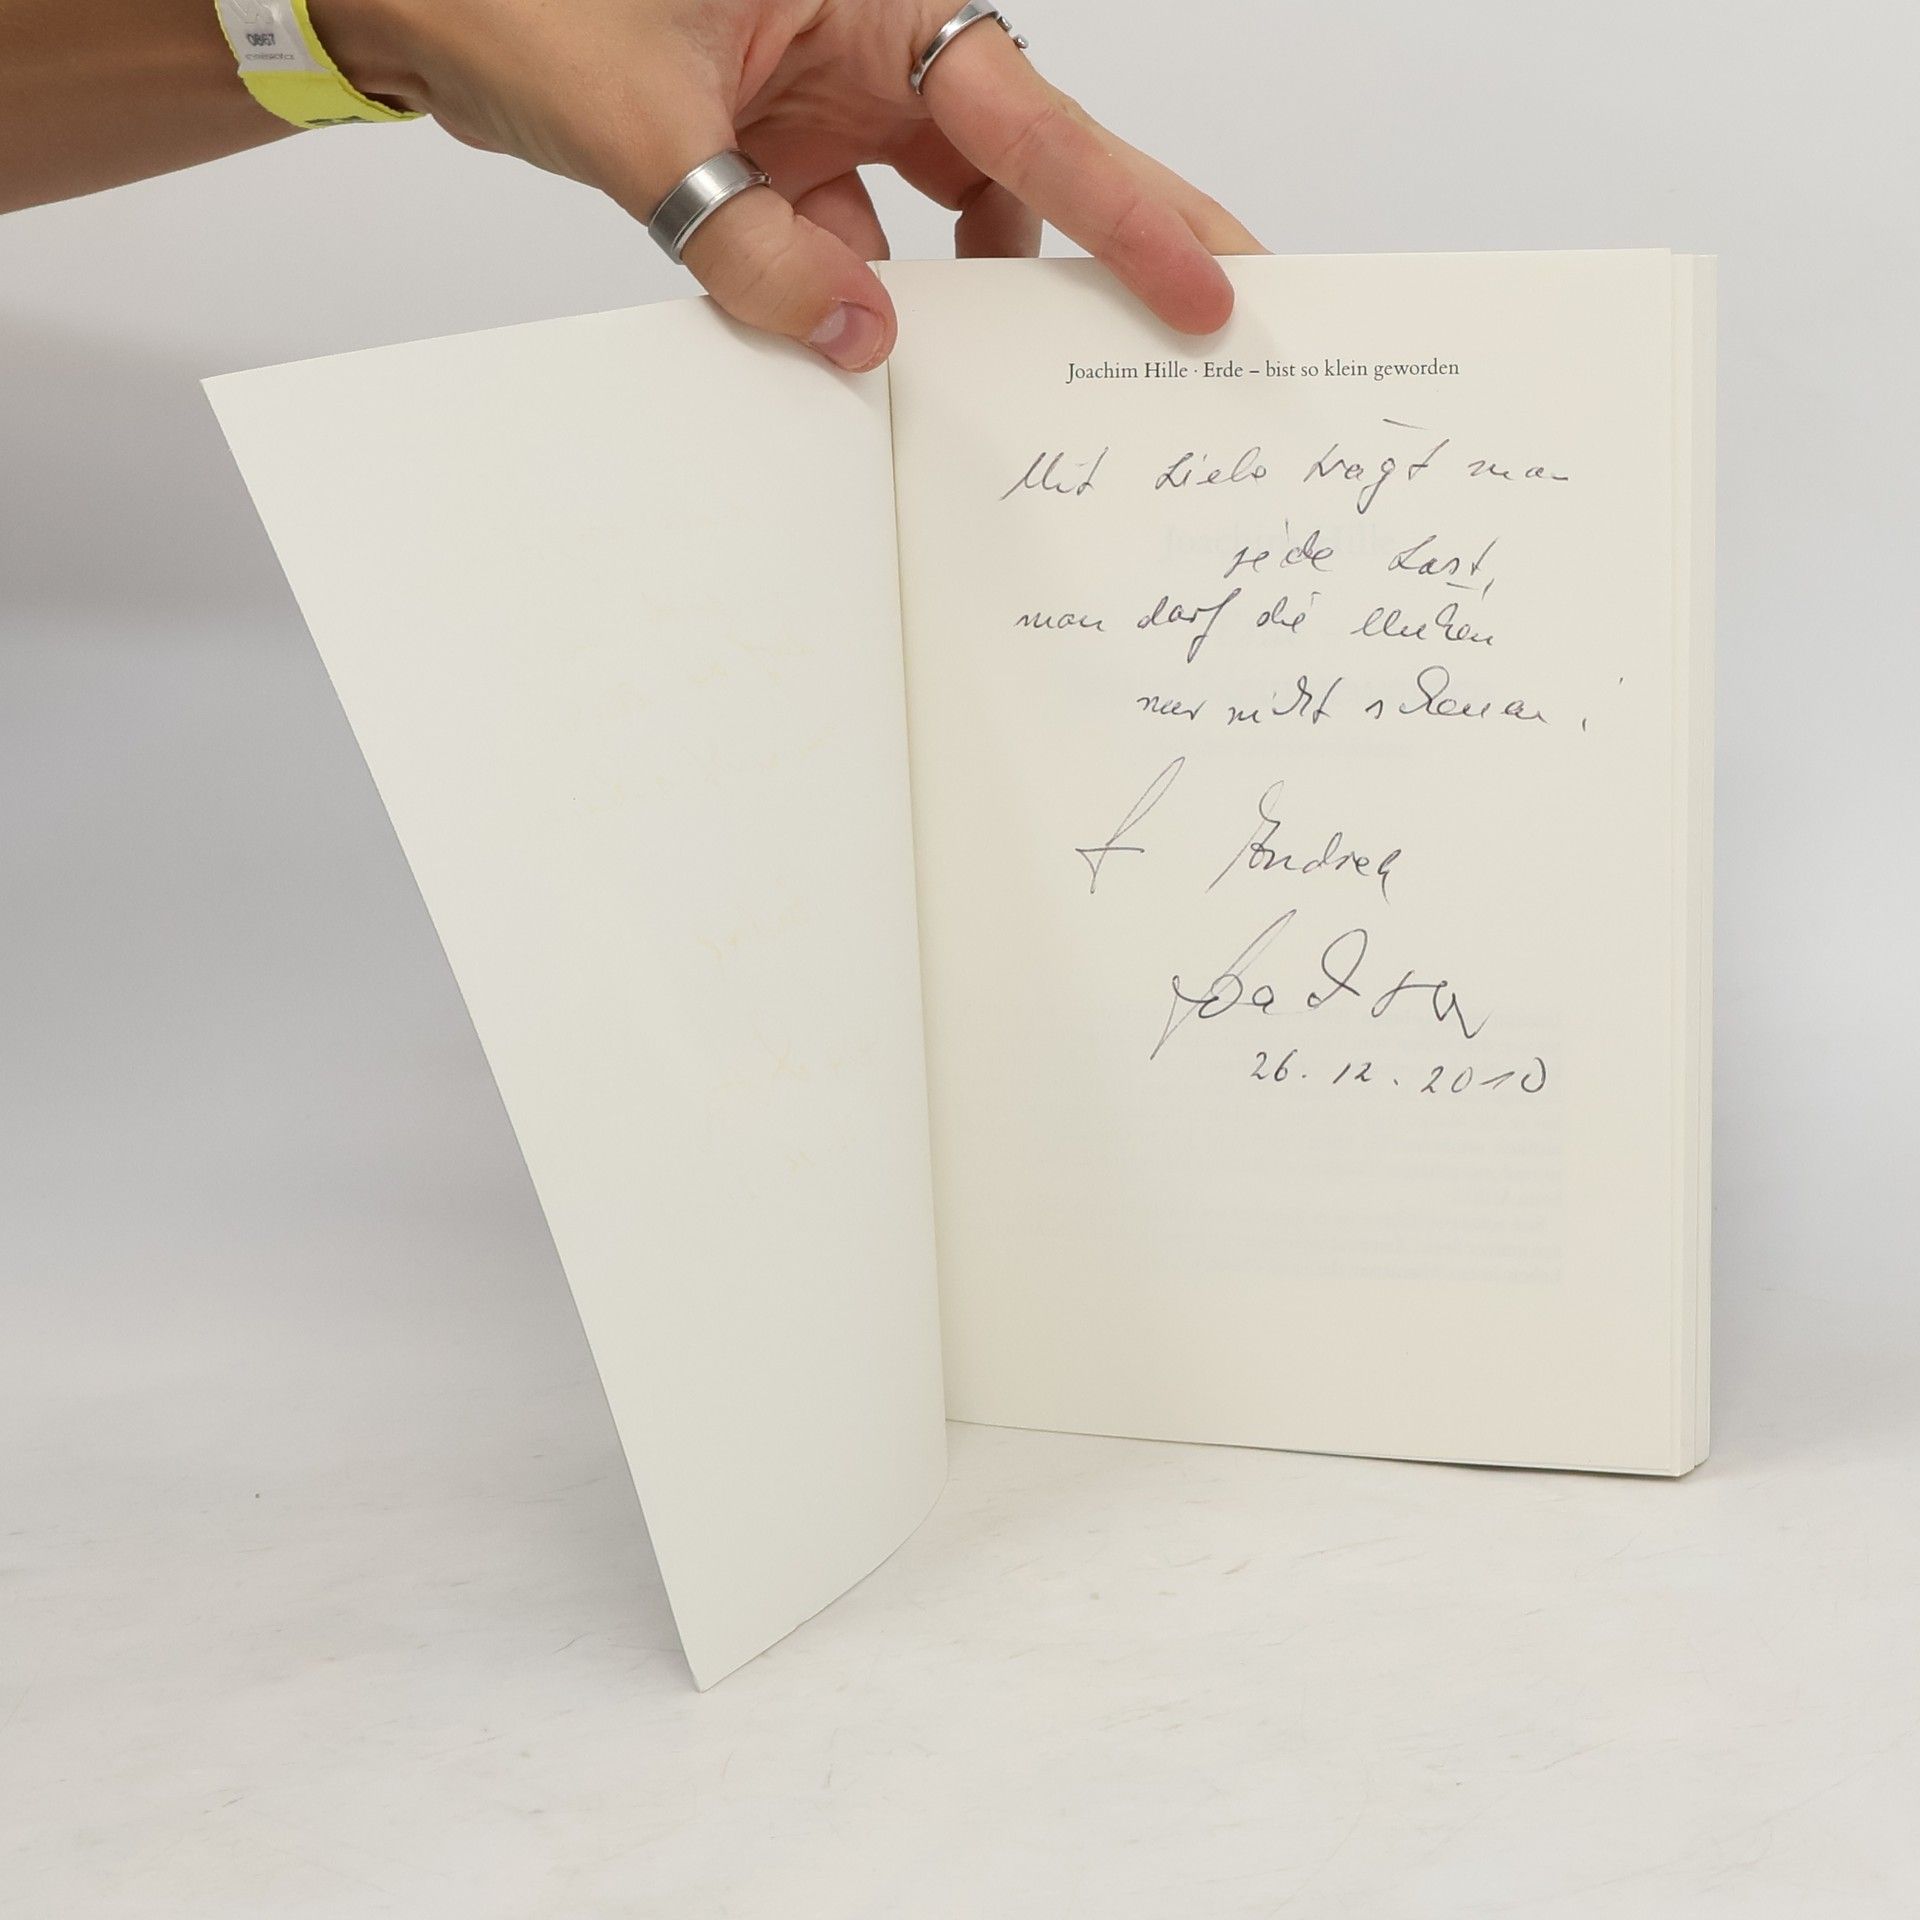 0867
Joachim Hille · Erde – bist so klein geworden
Mit Liebe trägt man
jede Last,
man darf die Mühen
nur nicht scheuen!
f Andrea
26.12.2010